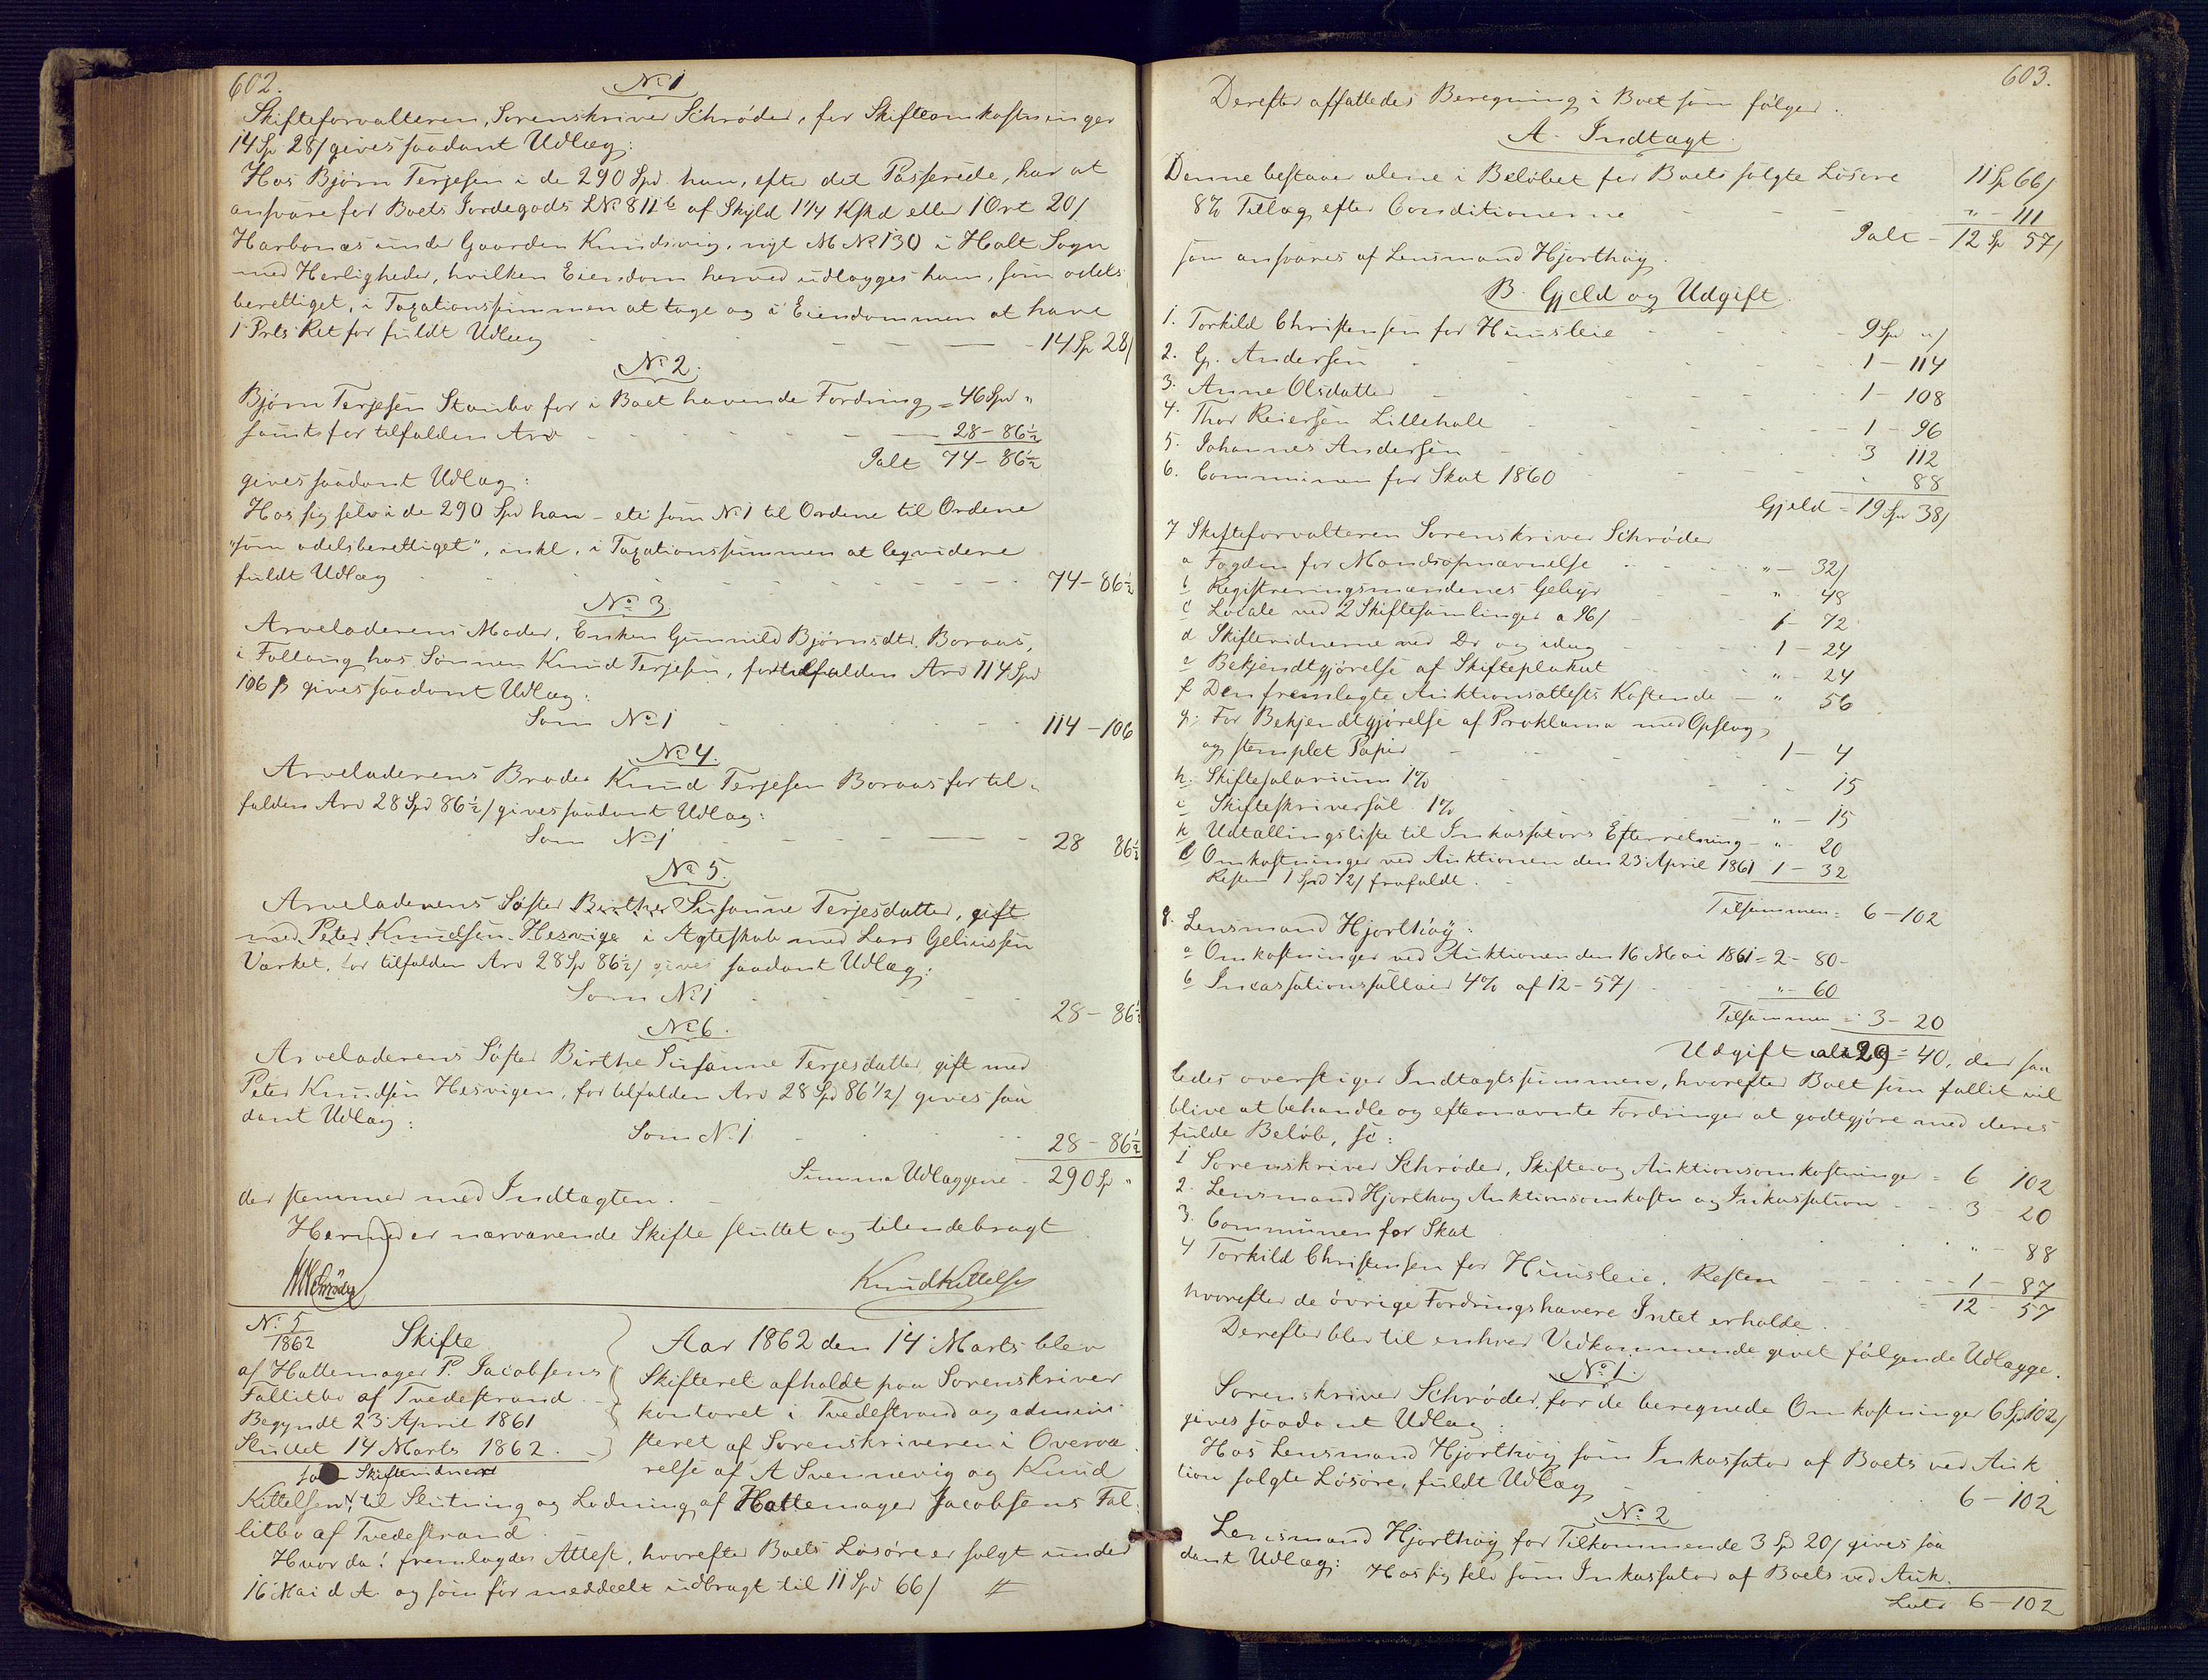 602.
No 1
Skifteforvalteren, Sorenskriver Schrøder, for Skifteomkostninger
14 Sp 28/ gives saadant Udlæg:
Hos Bjørn Terjesen i de 290 Spd. han, efter det Passerede, har at
ansvare for Boets Jordegods LNo 811b af Skyld 1 1/4 Kskd eller 1 Ort 20/
Harbonæs under Gaarden Knudsvig, nyt M No 130 i Holt Sogn
med Herligheder, hvilken Eiendom herved udlægges ham, som odels
berettiget, i Taxationssummen at tage og i Eiendommen at have
1 Prts Ret for fuldt Udlæg - 14 Sp 28/
No 2.
Bjørn Terjesen Stambo for i Boet havende Fordring = 46 Spd "
samt for tilfalden Arv 28 - 86 1/2
Ialt 74 - 86 1/2
gives saadant Udlæg:
Hos sig selv i de 290 Spd han - etc som No 1 til Ordene til Ordene
"som odelsberettiget", inkl. i Taxationssummen at
fuldt Udlæg 74 - 86 1/2
No 3.
Arveladerens Moder, Enken Gunnild Bjørnsdtr. Boraas,
i Follaug hos Sønnen Knud Terjesen, for tilfalden Arv 114 Spd
106 ß gives saadant Udlæg:
Som No 1 114 - 106
No 4.
Arveladerens Broder Knud Terjesen Boraas for til-
falden Arv 28 Spd 86 1/2/ gives saadant Udlæg:
Som No 1 28 86 1/2
No 5.
Arveladerens Søster Birthe Susanne Terjesdatter, gift
med Peter Knudsen Hesvige i Ægteskab med Lars Geliussen
Værket, for tilfalden Arv 28 Sp 86 1/2/ gives saadant Udlæg:
Som No 1 28 - 86 1/2
No 6.
Arveladerens Søster Birthe Susanne Terjesdatter, gift med
Peter Knudsen Hesvigen, for tilfalden Arv 28 Spd 86 1/2/ gives saa
dant Udlæg:
Som No 1 28 - 86 1/2
Summa Udlæggene - 290 Sp "
der stemmer med Indtægten.
Hermed er nærværende Skifte sluttet og tilendebragt
Schrøder
Knud Kittelsen
No 5
1862 Skifte
af Hattemager P. Jacobsens
Fallitbo af Tvedestrand
Begyndt 23 April 1861
Sluttet 14 Marts 1862.
Aar 1862 den 14 Marts blev
Skifteret afholdt paa Sorenskriver
kontoret i Tvedestrand og admini
steret af Sorenskriveren i Overvæ
relse af A Svennevig og Knud
som Skiftevidner
Kittelsen, til Slutning og Lodning af Hattemager Jacobsens Fal-
litbo af Tvedestrand.
Hvor da: fremlagdes Attest, hvorefter Boets Løsøre er solgt under
16 Mai d A og som før meddeelt udbragt til 11 Spd 66/
603.
Derefter affattedes Beregning i Boet som følger:
A. Indtægt.
Denne bestaaer alene i Beløbet for Boets solgte Løsøre 11 Sp 66/
8% Tillæg efter Conditionerne " - 111
Ialt - 12 Sp 57/
som ansvares af Lensmand Hjorthøy.
B. Gjeld og Udgift
1. Torkild Christensen for Huusleie 9 Spd "/
2. G. Andersen 1 - 114
3. Anne Olsdatter 1 - 108
4. Thor Reiersen Lillehole 1 - 96
5. Johannes Andersen 3 112
6. Communen for Skat 1860 " 88
Gjeld = 19 Spd 38/
7 Skifteforvalteren Sorenskriver Schrøder
a Fogden for Mandsopnævnelse " - 32/
b Registreringsmændenes Gebyr " 48
c Locale ved 2 Skiftesamlinger a 96/ 1 - 72
d Skiftevidnerne ved Do og idag 1 - 24
e Bekjendtgjørelse af Skifteplakat " - 24
f Den fremlagte Auktionsattests Kostende - " 56
g. For Bekjendtgjørelse af Proklama med Opslag
og stemplet Papir 1 - 4
h. Skiftesalarium 1% 15
i Skifteskriversal. 1% " - 15
k Udtællingsliste til Inkassators Efterretning - " - 20
l Omkostninger ved Auktionen den 23 April 1861 1 - 32
Resten 1 Spd 72/ frafaldt.
Tilsammen = 6 - 102
8. Lensmand Hjorthøy:
a Omkostninger ved Auktionen den 16 Mai 1861 = 2 - 80 -
b Incassationssallair 4% af 12 - 57/ " - 60
Tilsammen = 3 - 20
Udgift 29 = 40, der saa
ledes overstiger Indtægtssummen, hvorefter Boet som fallit vil
blive at behandle og efternævnte Fordringer at godtgjøre med deres
fulde Beløb, sc:
1 Sorenskriver Schrøder, Skifte og Auktionsomkostninger = 6 102
2. Lensmand Hjorthøy Auktionsomkostn og Inkassation 3 - 20
3. Communen for Skat " - 88
4 Torkild Christensen for Huusleie. Resten 1 - 87
12 - 57
hvorefter de øvrige Fordringshavere Intet erholde.
Derefter blev til enhver Vedkommende givet følgende Udlægge.
No 1.
Sorenskriver Schrøder, for de beregnede Omkostninger 6 Sp 102/
gives saadant Udlæg:
Hos Lensmand Hjorthøy som Inkassator af Boets ved Auk
tion solgte Løsøre, fuldt Udlæg 6 - 102
No 2
Lensmand Hjorthøy for Tilkommende 3 Sp 20/ gives saa
dant Udlæg: Hos sig selv som Inkassator af Boets ved Auk.
Lats 6 - 102